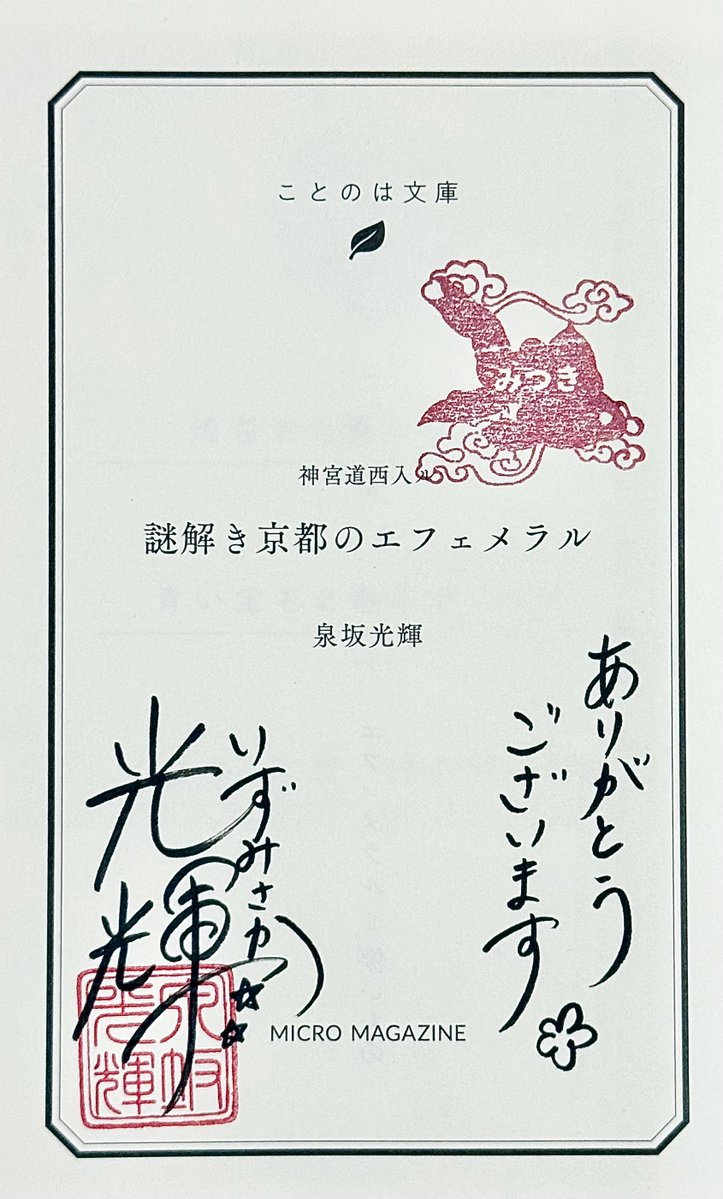 ことのは文庫
みつき
神宮道西入ル
謎解き京都のエフェメラル
泉坂光輝
ありがとう
ございます
いずみさか
光輝
MICRO MAGAZINE
泉坂
光輝